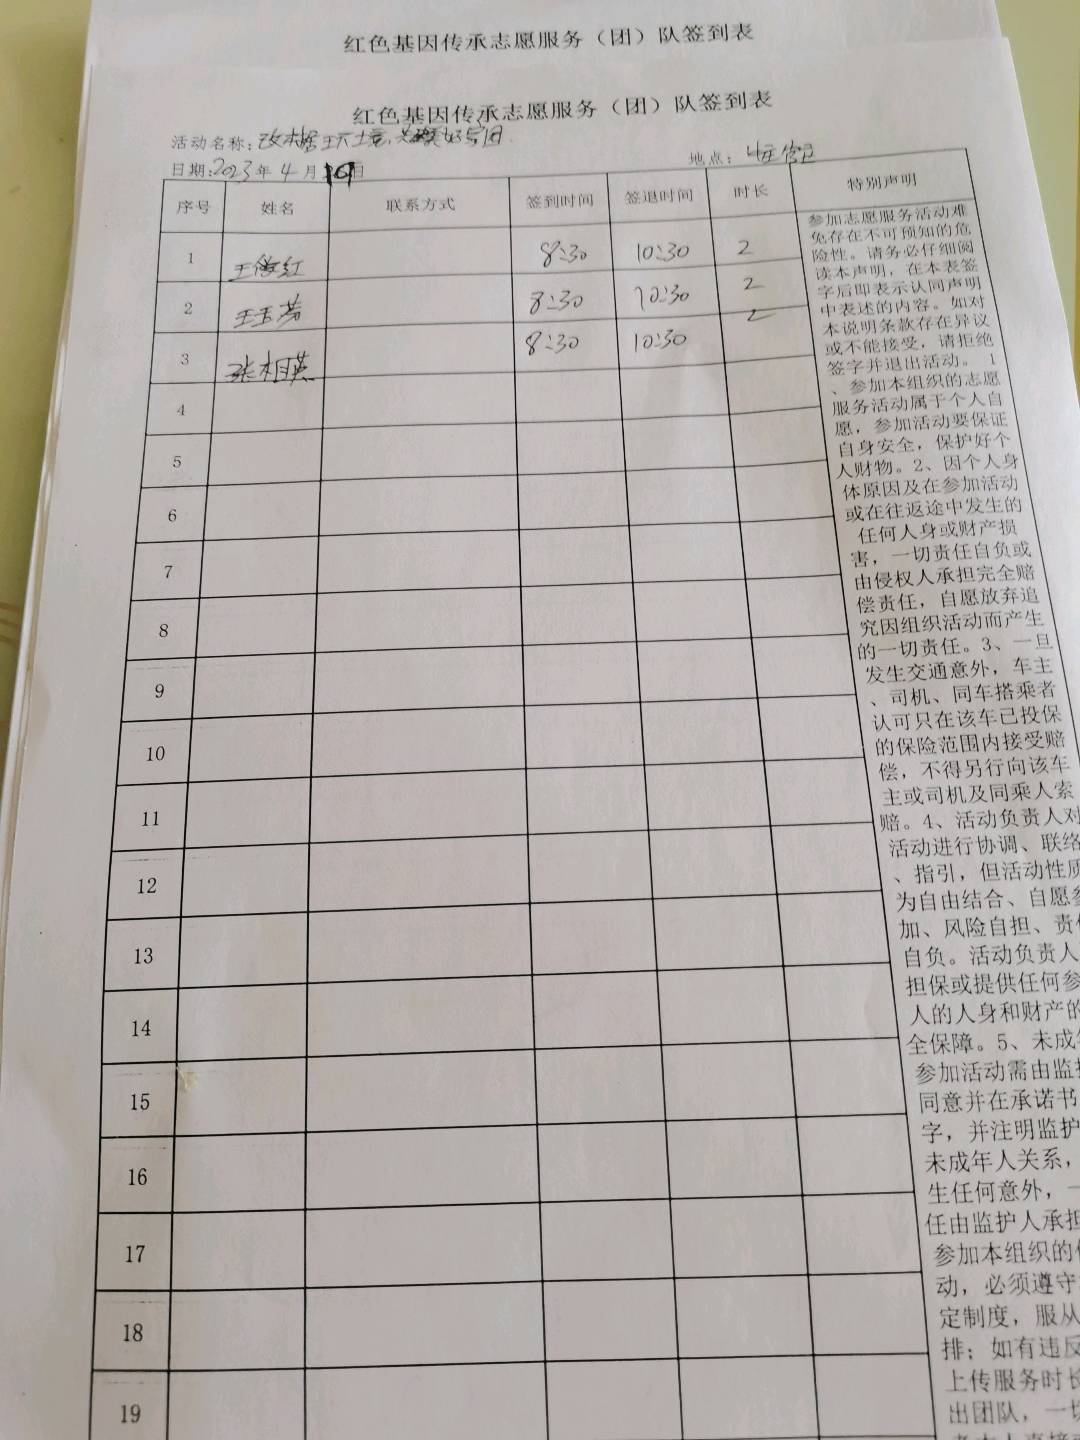 红色基因传承志愿服务（团）队签到表
红色基因传承志愿服务（团）队签到表
活动名称:
日期:2023年4月 日
地点:
序号 姓名 联系方式 签到时间 签退时间 时长 特别声明
1 王 红 8:30 10:30 2
2 王玉芳 8:30 10:30 2
3 张相英 8:30 10:30 2
4
5
6
7
8
9
10
11
12
13
14
15
16
17
18
19
参加志愿服务活动难
免存在不可预知的危
险性。请务必仔细阅
读本声明，在本表签
字后即表示认同声明
中表述的内容。如对
本说明条款存在异议
或不能接受，请拒绝
签字并退出活动。1
、参加本组织的志愿
服务活动属于个人自
愿，参加活动要保证
自身安全，保护好个
人财物。2、因个人身
体原因及在参加活动
或在往返途中发生的
任何人身或财产损
害，一切责任自负或
由侵权人承担完全赔
偿责任，自愿放弃追
究因组织活动而产生
的一切责任。3、一旦
发生交通意外，车主
、司机、同车搭乘者
认可只在该车已投保
的保险范围内接受赔
偿，不得另行向该车
主或司机及同乘人索
赔。4、活动负责人对
活动进行协调、联络
、指引，但活动性质
为自由结合、自愿参
加、风险自担、责任
自负。活动负责人
担保或提供任何参
人的人身和财产的
全保障。5、未成年
参加活动需由监护
同意并在承诺书
字，并注明监护
未成年人关系，
生任何意外，一
任由监护人承担
参加本组织的
动，必须遵守
定制度，服从
排；如有违反
上传服务时长
出团队，一切